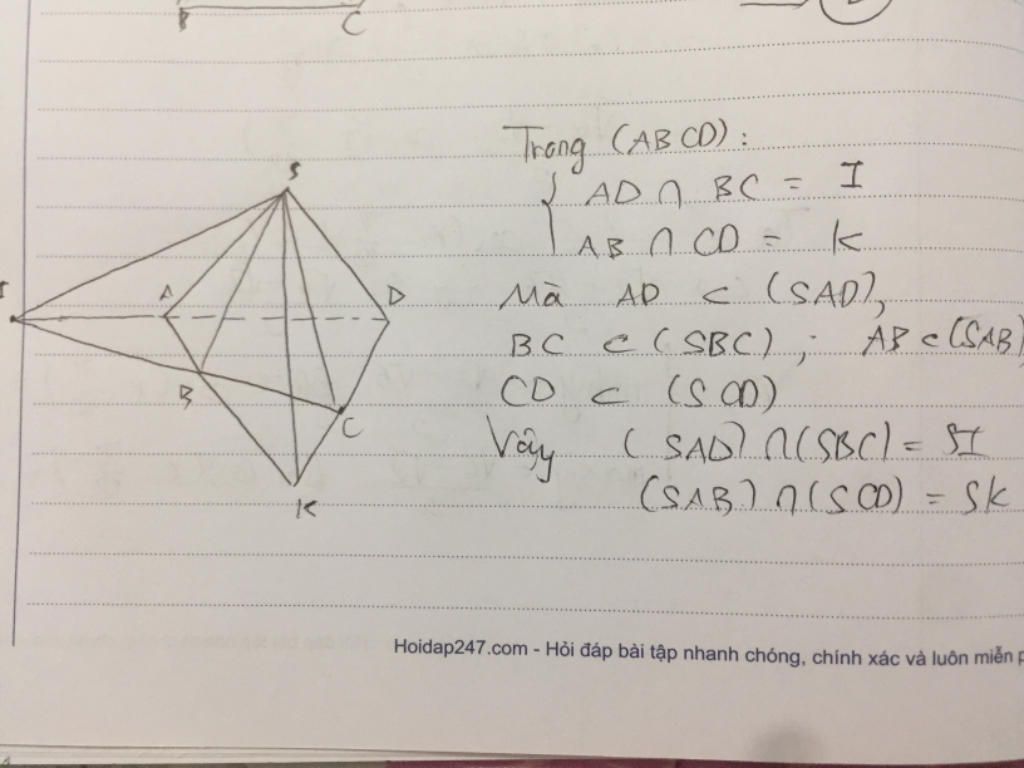 B C
S
I A D
B
C
K
Trong (ABCD):
AD ∩ BC = I
AB ∩ CD = K
Mà AD ⊂ (SAD),
BC ⊂ (SBC); AB ⊂ (SAB)
CD ⊂ (SCD)
Vậy (SAD) ∩ (SBC) = SI
(SAB) ∩ (SCD) = SK
Hoidap247.com - Hỏi đáp bài tập nhanh chóng, chính xác và luôn miễn p